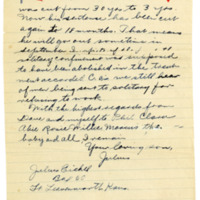 was cut from 30 yrs to 3 yrs
Now his sentence has been cut
again to 18 months. That means
he will go out sometime in
september
solitary confinement was supposed
to have been abolished in the
we still hear
of men being sent to solitary for
refusing to work.
With the highest regards from
Dave and myself to
Abie Rose Willie Mannie the
baby and all I remain
Your loving son,
Julius
Julius Eichel
Box 65
Ft Leavenworth Kans.